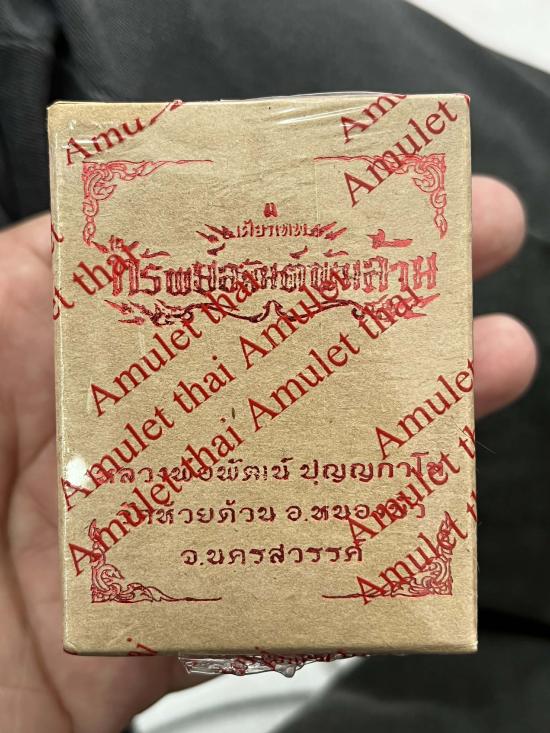 เศียรเทพ
ทรัพย์อนันต์พันล้าน
หลวงพ่อพัฒน์ ปุญญกาโม
วัดห้วยด้วน อ.หนองบัว
จ.นครสวรรค์
Amulet thai
Amulet
Amulet
Amulet thai Amulet thai
Amulet thai Amulet thai
Amulet thai
Amulet thai